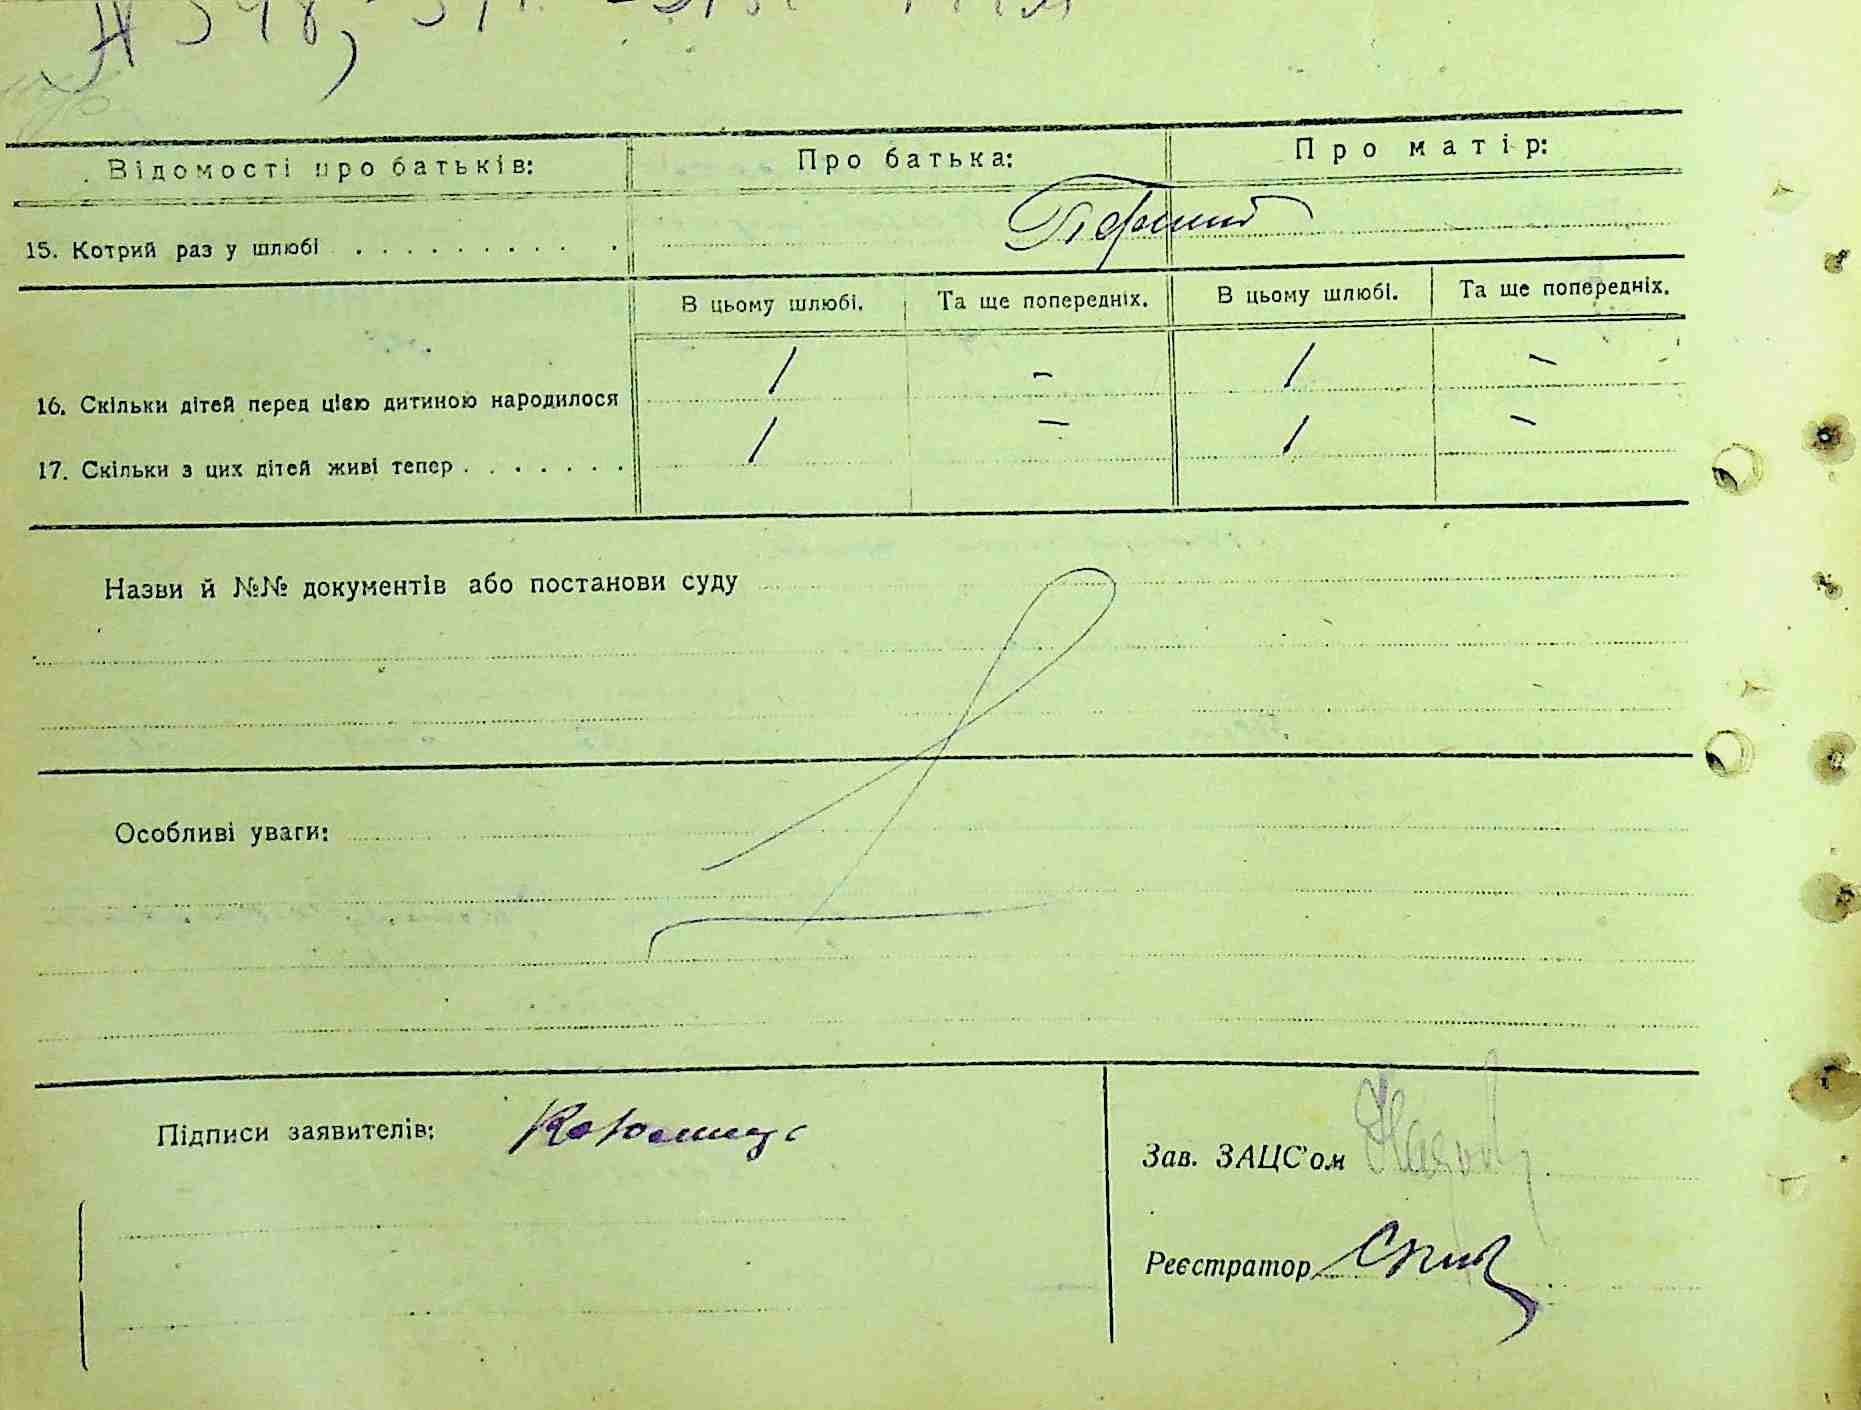 Відомості про батьків: Про батька: Про матір:
15. Котрий раз у шлюбі . . . . . . . . . . Перший
В цьому шлюбі. Та ще попередніх. В цьому шлюбі. Та ще попередніх.
16. Скільки дітей перед цією дитиною народилося 1 – 1 –
17. Скільки з цих дітей живі тепер . . . . . . . 1 – 1 –
Назви й №№ документів або постанови суду
Особливі уваги:
Підписи заявителів:
Зав. ЗАЦС'ом
Реєстратор